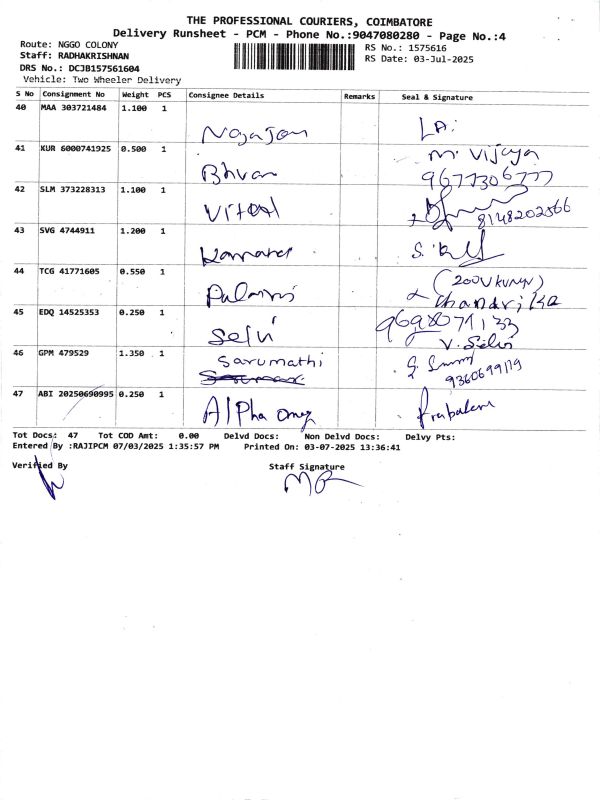 THE PROFESSIONAL COURIERS, COIMBATORE
Delivery Runsheet - PCM - Phone No.:9047080280 - Page No.:4
Route: NGGO COLONY
Staff: RADHAKRISHNAN
DRS No.: DCJB157561604
Vehicle: Two Wheeler Delivery
RS No.: 1575616
RS Date: 03-Jul-2025
S No Consignment No Weight PCS Consignee Details Remarks Seal & Signature
40 MAA 303721484 1.100 1
41 KUR 6000741925 0.500 1 M. Vijaya
Bhvan 9677306777
42 SLM 373228313 1.100 1
Vital 8148202566
43 SVG 4744911 1.200 1
44 TCG 41771605 0.550 1
Palani Chandrika
45 EDQ 14525353 0.250 1 9698071133
Selvi V. Selvi
46 GPM 479529 1.350 1 Sarumathi
9360699119
47 ABI 20250690995 0.250 1
Alpha
Tot Docs: 47 Tot COD Amt: 0.00 Delvd Docs: Non Delvd Docs: Delvy Pts:
Entered By :RAJIPCM 07/03/2025 1:35:57 PM Printed On: 03-07-2025 13:36:41
Verified By Staff Signature